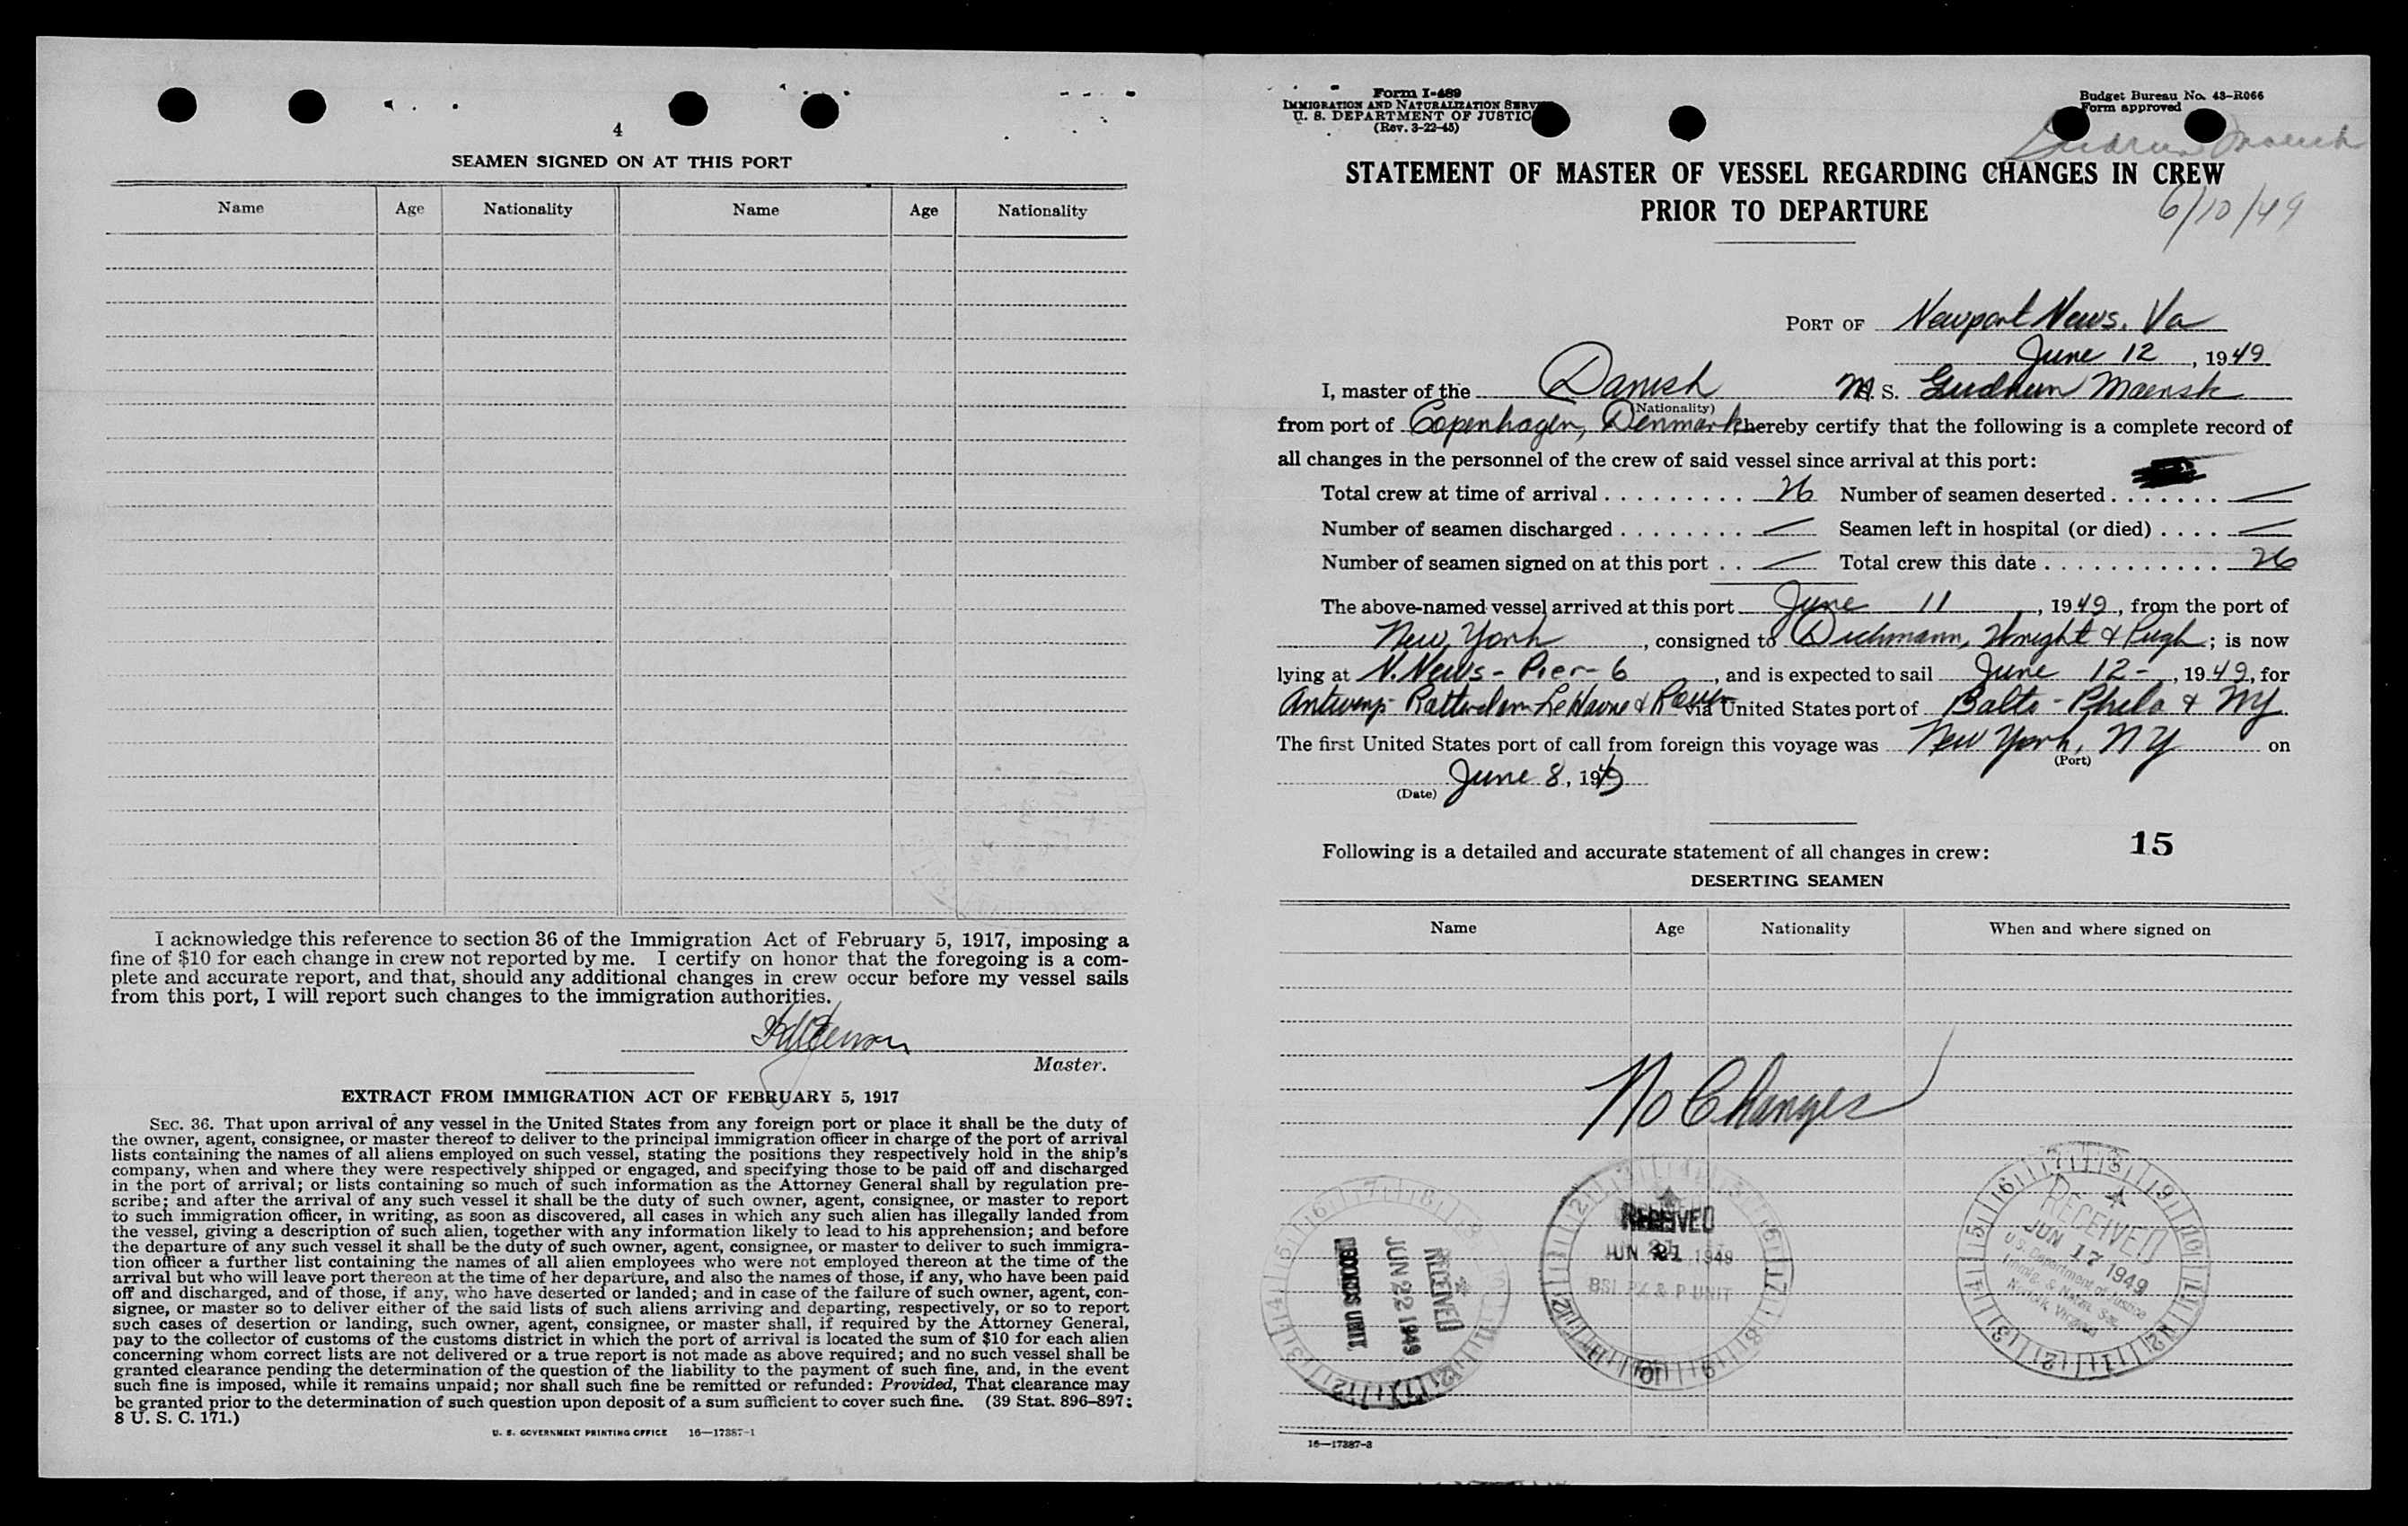 4
SEAMEN SIGNED ON AT THIS PORT
Name Age Nationality Name Age Nationality
I acknowledge this reference to section 36 of the Immigration Act of February 5, 1917, imposing a
fine of $10 for each change in crew not reported by me. I certify on honor that the foregoing is a com-
plete and accurate report, and that, should any additional changes in crew occur before my vessel sails
from this port, I will report such changes to the immigration authorities.
Master.
EXTRACT FROM IMMIGRATION ACT OF FEBRUARY 5, 1917
SEC. 36. That upon arrival of any vessel in the United States from any foreign port or place it shall be the duty of
the owner, agent, consignee, or master thereof to deliver to the principal immigration officer in charge of the port of arrival
lists containing the names of all aliens employed on such vessel, stating the positions they respectively hold in the ship's
company, when and where they were respectively shipped or engaged, and specifying those to be paid off and discharged
in the port of arrival; or lists containing so much of such information as the Attorney General shall by regulation pre-
scribe; and after the arrival of any such vessel it shall be the duty of such owner, agent, consignee, or master to report
to such immigration officer, in writing, as soon as discovered, all cases in which any such alien has illegally landed from
the vessel, giving a description of such alien, together with any information likely to lead to his apprehension; and before
the departure of any such vessel it shall be the duty of such owner, agent, consignee, or master to deliver to such immigra-
tion officer a further list containing the names of all alien employees who were not employed thereon at the time of the
arrival but who will leave port thereon at the time of her departure, and also the names of those, if any, who have been paid
off and discharged, and of those, if any, who have deserted or landed; and in case of the failure of such owner, agent, con-
signee, or master so to deliver either of the said lists of such aliens arriving and departing, respectively, or so to report
such cases of desertion or landing, such owner, agent, consignee, or master shall, if required by the Attorney General,
pay to the collector of customs of the customs district in which the port of arrival is located the sum of $10 for each alien
concerning whom correct lists are not delivered or a true report is not made as above required; and no such vessel shall be
granted clearance pending the determination of the question of the liability to the payment of such fine, and, in the event
such fine is imposed, while it remains unpaid; nor shall such fine be remitted or refunded: Provided, That clearance may
be granted prior to the determination of such question upon deposit of a sum sufficient to cover such fine. (39 Stat. 896–897;
8 U. S. C. 171.)
U. S. GOVERNMENT PRINTING OFFICE 16—17387-1
Form I-489
IMMIGRATION AND NATURALIZATION SERV
U. S. DEPARTMENT OF JUSTIC
(Rev. 3-22-45)
Budget Bureau No. 43-R066
Form approved
Gudrun Maersk
6/10/49
STATEMENT OF MASTER OF VESSEL REGARDING CHANGES IN CREW
PRIOR TO DEPARTURE
PORT OF Newport News, Va
June 12, 1949
I, master of the Danish M. S. Gudrun Maersk
(Nationality)
from port of Copenhagen, Denmark hereby certify that the following is a complete record of
all changes in the personnel of the crew of said vessel since arrival at this port:
Total crew at time of arrival 26 Number of seamen deserted —
Number of seamen discharged — Seamen left in hospital (or died) —
Number of seamen signed on at this port — Total crew this date 26
The above-named vessel arrived at this port June 11, 1949, from the port of
New York, consigned to Dichmann, Wright & Pugh; is now
lying at N. News - Pier - 6, and is expected to sail June 12 -, 1949, for
Antwerp - Rotterdam - Le Havre & Rouen via United States port of Balto - Phila & NY
The first United States port of call from foreign this voyage was New York, NY on
(Port)
June 8, 1949
(Date)
15
Following is a detailed and accurate statement of all changes in crew:
DESERTING SEAMEN
Name Age Nationality When and where signed on
No Changes
RECEIVED
JUN 22 1949
RECORDS UNIT
RECEIVED
JUN 21 1949
BSI PX & P UNIT
RECEIVED
JUN 17 1949
U.S. Department of Justice
Immig. & Natz. Ser.
Norfolk, Virginia
16—17387-3